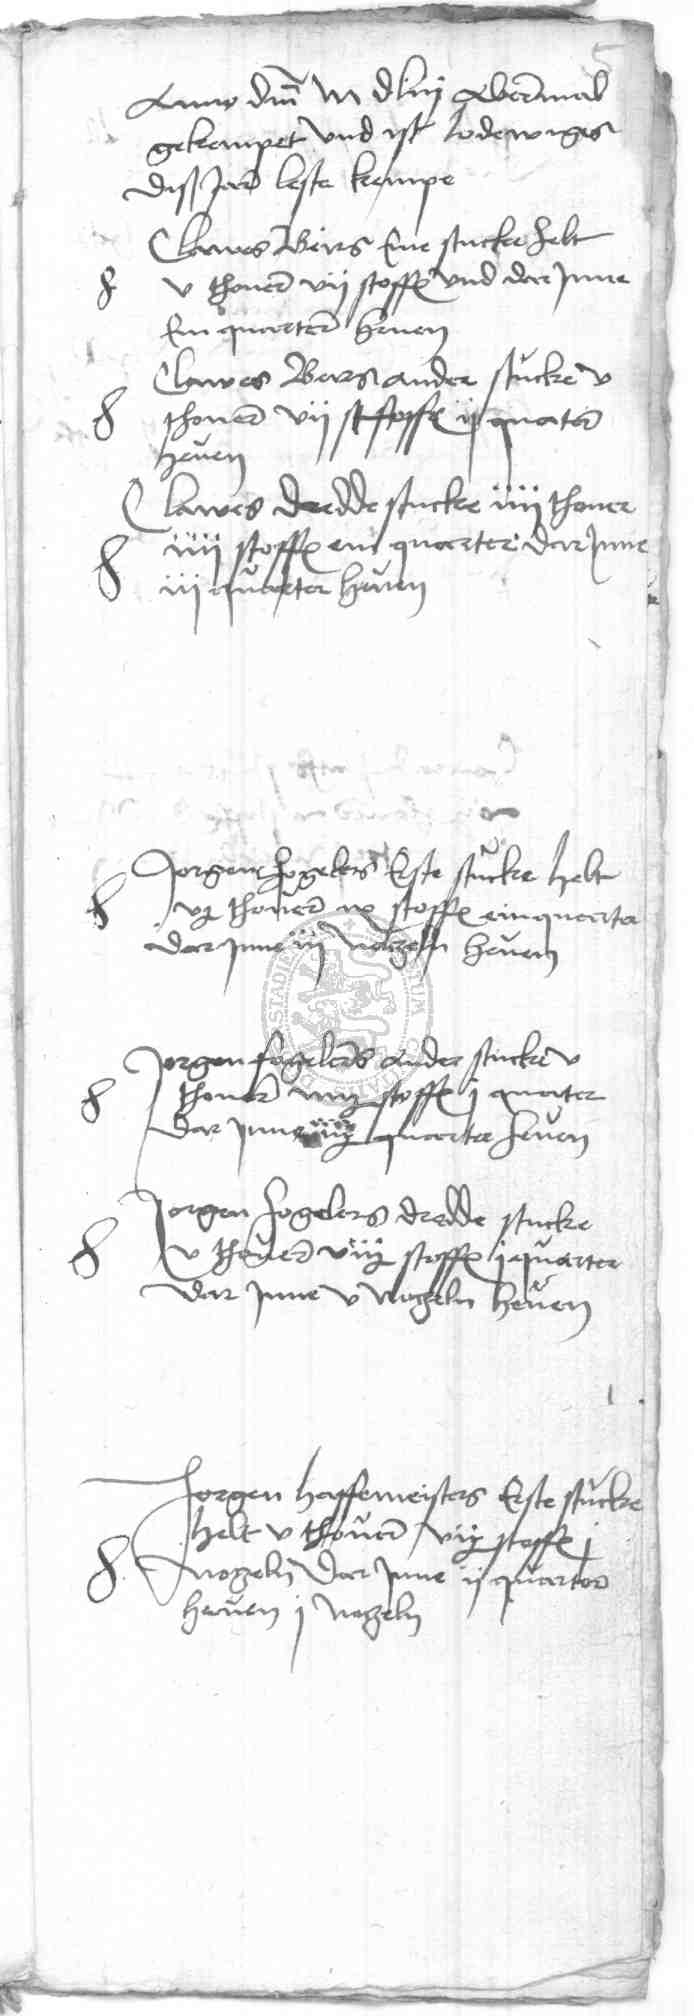 5
Anno dm̃ M dliij Abermal
gekempet vnd ist lodewiges
diss Jar leste kempe
Clawes Beirs Eine stucke helt
v thoner vij stoffe vnd dar Jnne
Ein quarter heuen
Clawes Beirs ander stucke v
thoner vij stoffe ij quater
heuen
Clawes dredde stucke iiij thoner
iiij stoffe ein quarter dar Jnne
iij quarter heuen
Jorgen fogelers Erste stucke helt
vj thoner ix stoffe ein quarter
dar Jnne iij nogeln heuen
Jorgen fogelers ander stucke v
thoner viij stoffe j quarter
dar Jnne iij quarter heuen
Jorgen fogelers dredde stucke
v thoner viij stoffe j quarter
dar Jnne v nogeln heuen
Jorgen haffemeisters Erste stucke
helt v thoner vij stoffe j
nogeln dar Jnne ij quarter
heuen j nogeln